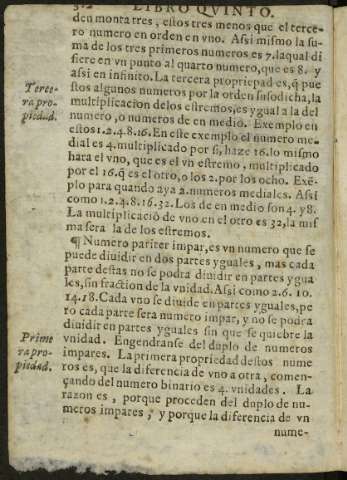 LIBRO QVINTO.
den monta tres, estos tres menos que el terce-
ro numero en orden en vno. Assi mismo la su-
ma de los tres primeros numeros es 7. laqual di
fiere en vn punto al quarto numero, que es 8. y
assi en infinito. La tercera propriedad es, q̃ pue
stos algunos numeros por la orden susodicha, la
multiplicacion de los estremos, es ygual a la del
numero, o numeros de en medio. Exemplo en
estos 1.2.4.8.16. En este exemplo el numero me-
dial es 4. multiplicado por si, haze 16. lo mismo
hara el vno, que es el vn estremo, multiplicado
por el 16. q̃ es el otro, o los 2. por los ocho. Exẽ-
plo para quando aya 2. numeros mediales. Assi
como 1.2.4.8.16.32. Los de en medio son 4. y 8.
La multiplicaciõ de vno en el otro es 32, la mis
ma sera la de los estremos.
¶ Numero pariter impar, es vn numero que se
puede diuidir en dos partes yguales, mas cada
parte destas no se podra diuidir en partes ygua
les, sin fraction de la vnidad. Assi como 2.6.10.
14.18. Cada vno se diuide en partes yguales, pe
ro cada parte sera numero impar, y no se podra
diuidir en partes yguales sin que se quiebre la
vnidad. Engendranse del duplo de numeros
impares. La primera propriedad destos nume
ros es, que la diferencia de vno a otra, comen-
çando del numero binario es 4. vnidades. La
razon es, porque proceden del duplo de nu-
meros impares, y porque la diferencia de vn
nume-
Terce-
ra pro-
piedad.
Prime
ra pro-
piedad.